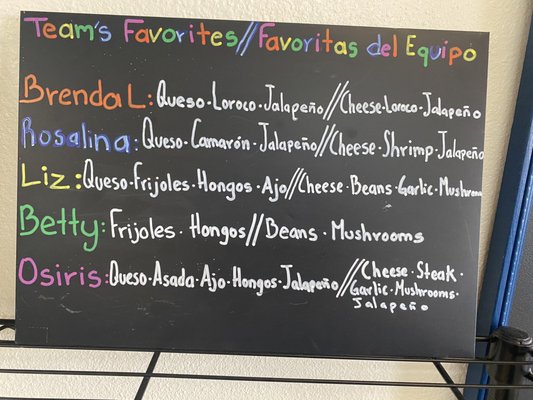 Team's Favorites//Favoritas del Equipo
Brenda L: Queso·Loroco·Jalapeño//Cheese·Loroco·Jalapeño
Rosalina: Queso·Camarón·Jalapeño//Cheese·Shrimp·Jalapeño
Liz: Queso·Frijoles·Hongos·Ajo//Cheese·Beans·Garlic·Mushrooms
Betty: Frijoles·Hongos//Beans·Mushrooms
Osiris: Queso·Asada·Ajo·Hongos·Jalapeño//Cheese·Steak·
Garlic·Mushrooms·
Jalapeño